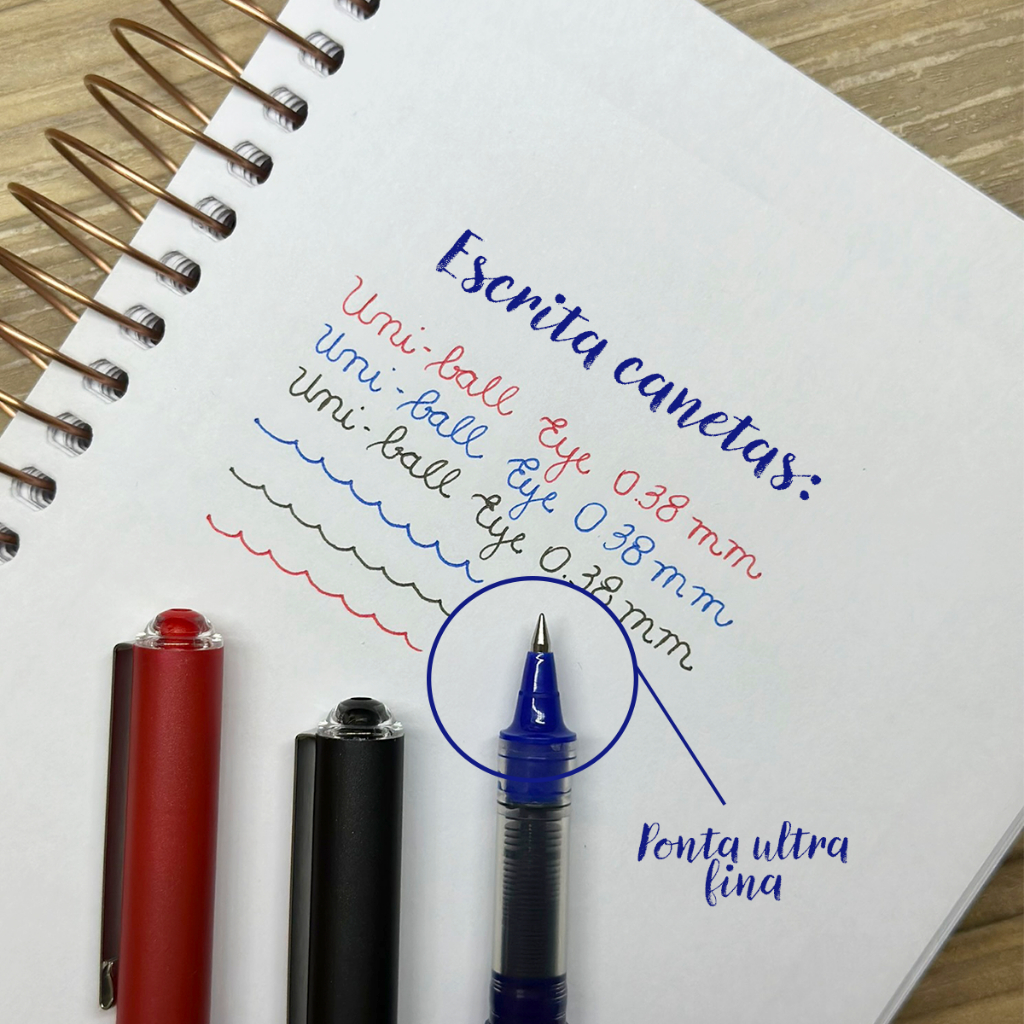 Escrita canetas:
Uni-ball Eye 0.38 mm
Uni-ball Eye 0.38 mm
Uni-ball Eye 0.38 mm
Ponta ultra
fina